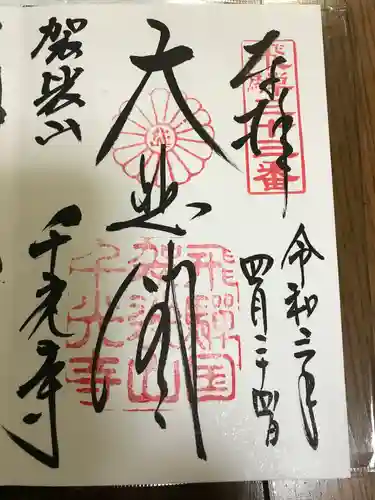 奉拝
飛騨三十三番
令和三年
四月二十四日
大悲閣
飛騨国
袈裟山
千光寺
袈裟山
千光寺